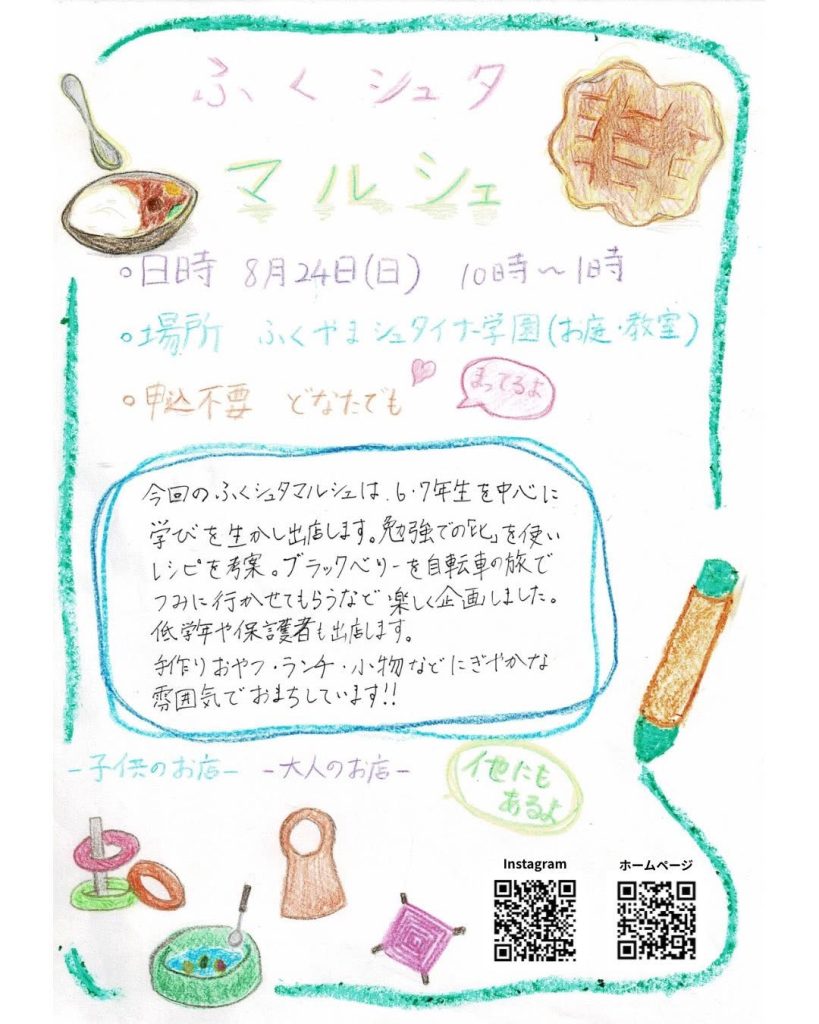 ふくシュタ
マルシェ
○日時 8月24日(日) 10時〜1時
○場所 ふくやまシュタイナー学園(お庭・教室)
○申込不要 どなたでも
まってるよ
今回のふくシュタマルシェは、6・7年生を中心に
学びを生かし出店します。勉強での「比」を使い
レシピを考案。ブラックベリーを自転車の旅で
つみに行かせてもらうなど楽しく企画しました。
低学年や保護者も出店します。
手作りおやつ・ランチ・小物などにぎやかな
雰囲気でおまちしています!!
-子供のお店-
-大人のお店-
他にも
あるよ
Instagram
ホームページ